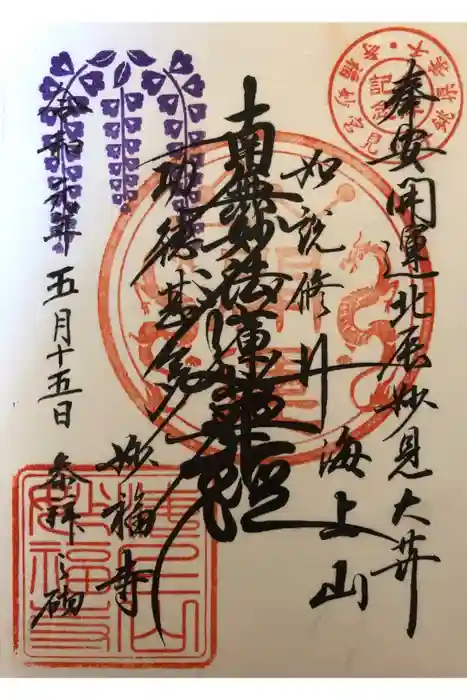 奉安開運北辰妙見大菩薩
如説修行
海上山
南無妙法蓮華経
功徳甚多
妙福寺
令和元年五月十五日
参拝之砌
記念
海上山
妙福寺